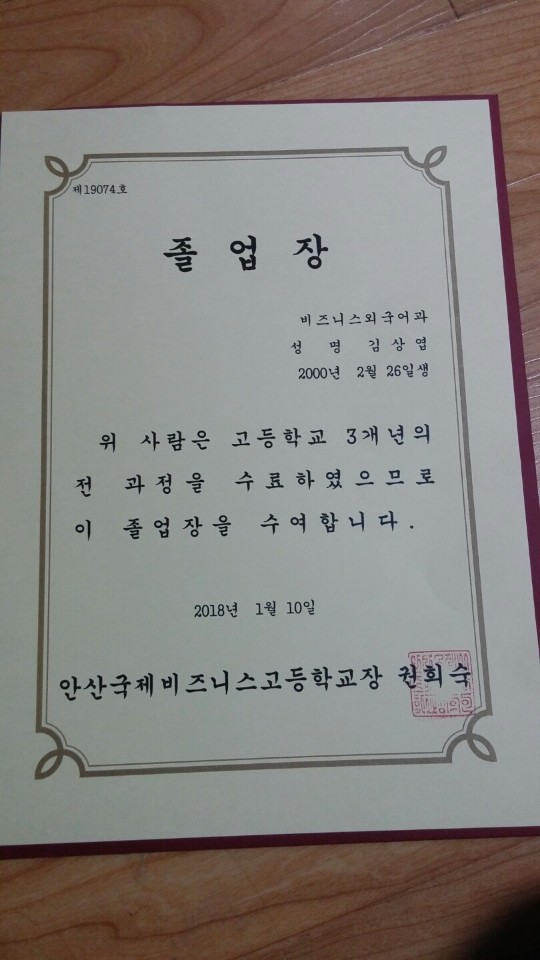 제19074호
졸업장
비즈니스외국어과
성 명 김상엽
2000년 2월 26일생
위 사람은 고등학교 3개년의
전 과정을 수료하였으므로
이 졸업장을 수여합니다.
2018년 1월 10일
안산국제비즈니스고등학교장 권희숙